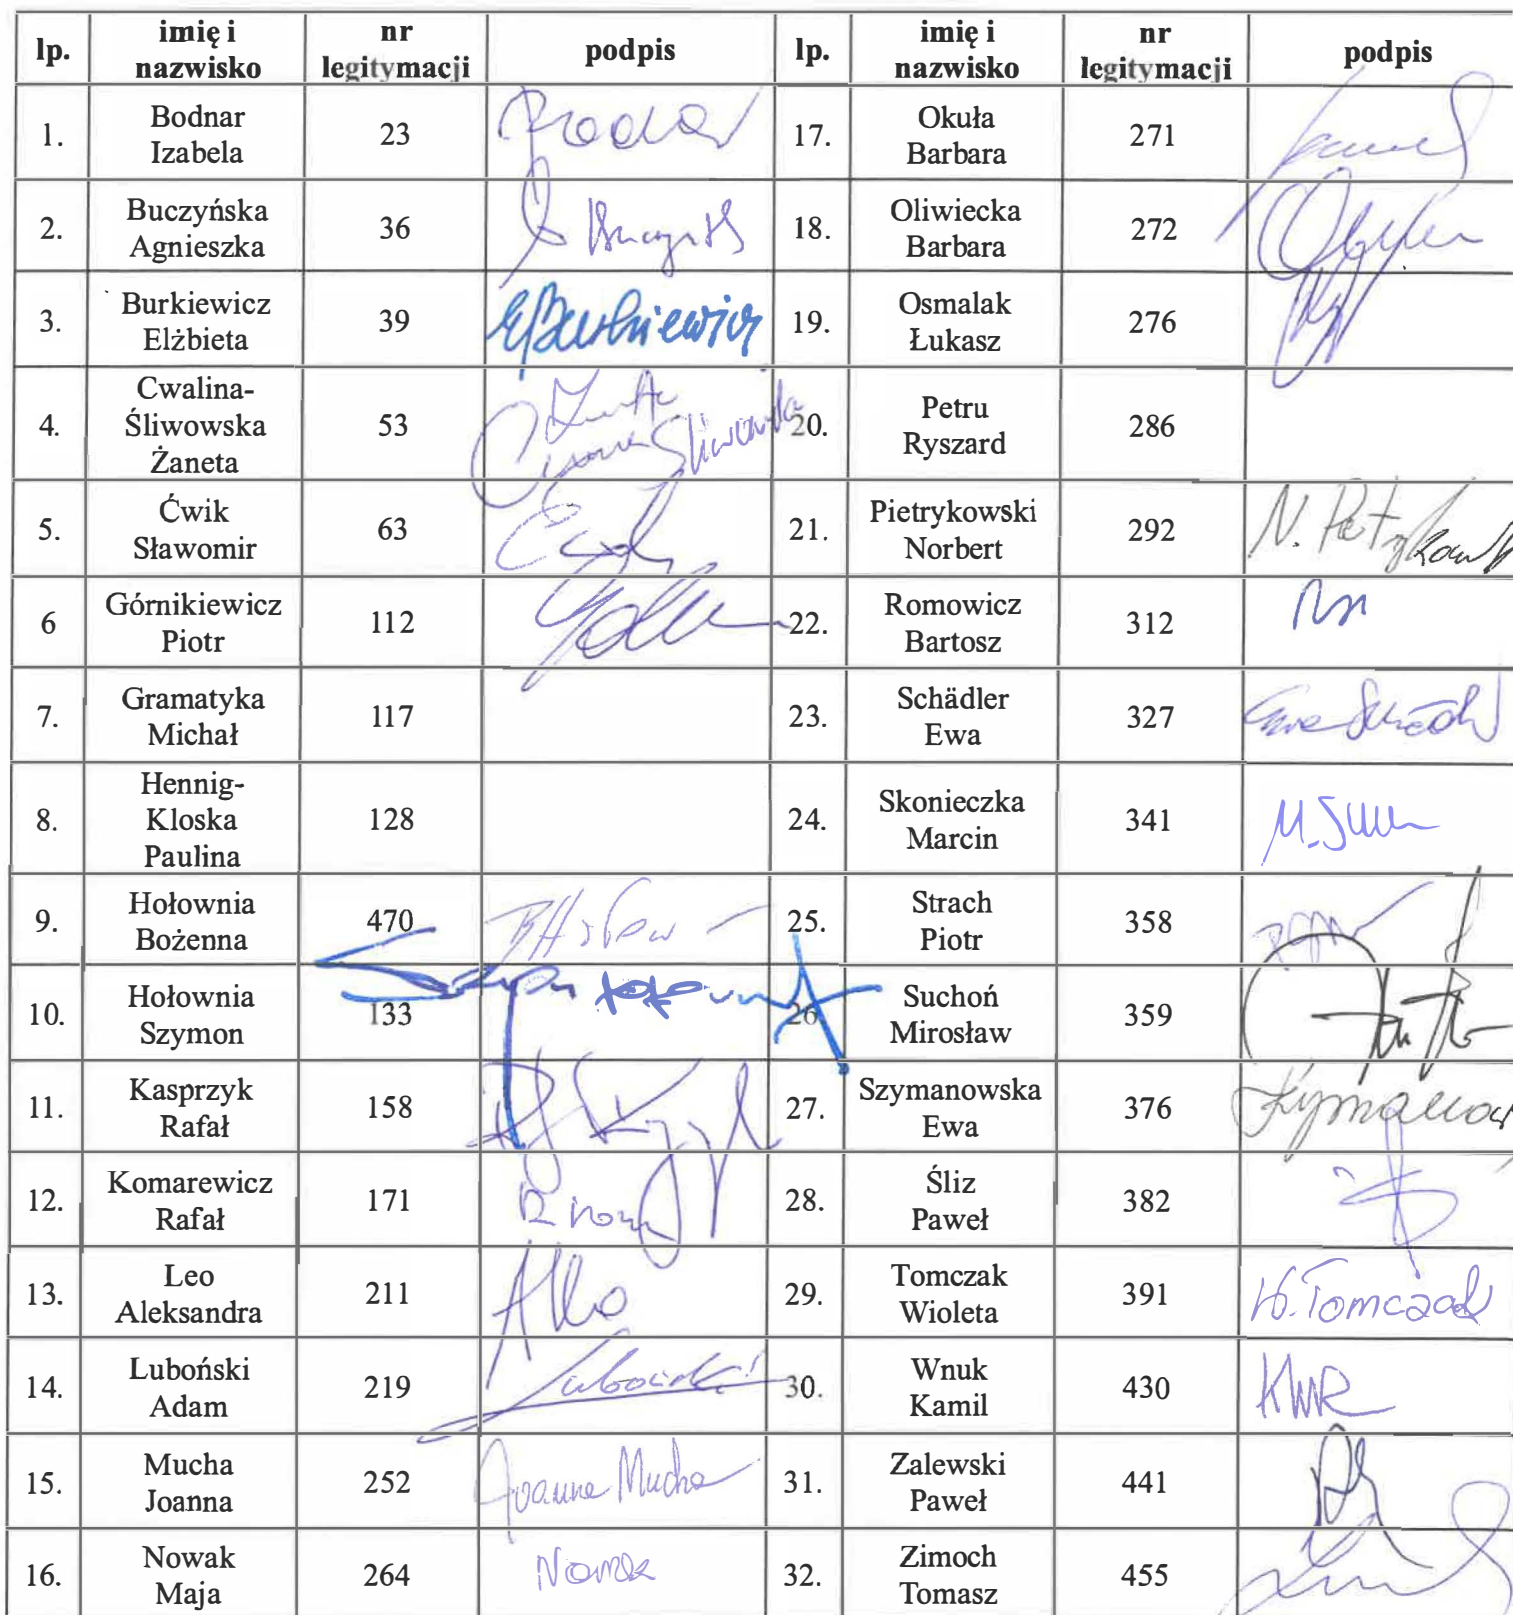 lp. imię i nazwisko nr legitymacji podpis lp. imię i nazwisko nr legitymacji podpis
1. Bodnar Izabela 23 17. Okuła Barbara 271
2. Buczyńska Agnieszka 36 18. Oliwiecka Barbara 272
3. Burkiewicz Elżbieta 39 EBurkiewicz 19. Osmalak Łukasz 276
4. Cwalina-Śliwowska Żaneta 53 20. Petru Ryszard 286
5. Ćwik Sławomir 63 21. Pietrykowski Norbert 292
6 Górnikiewicz Piotr 112 22. Romowicz Bartosz 312
7. Gramatyka Michał 117 23. Schädler Ewa 327
8. Hennig-Kloska Paulina 128 24. Skonieczka Marcin 341
9. Hołownia Bożenna 470 25. Strach Piotr 358
10. Hołownia Szymon 133 26. Suchoń Mirosław 359
11. Kasprzyk Rafał 158 27. Szymanowska Ewa 376
12. Komarewicz Rafał 171 28. Śliz Paweł 382
13. Leo Aleksandra 211 29. Tomczak Wioleta 391 W. Tomczak
14. Luboński Adam 219 30. Wnuk Kamil 430
15. Mucha Joanna 252 Joanna Mucha 31. Zalewski Paweł 441
16. Nowak Maja 264 Nowak 32. Zimoch Tomasz 455